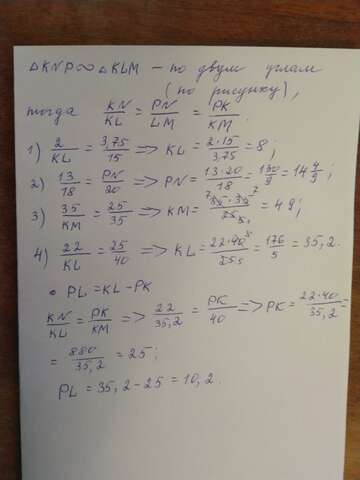 △KNP∞△KLM – по двум углам
(по рисунку),
тогда KN/KL = PN/LM = PK/KM.
1) 2/KL = 3,75/15 => KL = 2·15/3,75 = 8;
2) 13/18 = PN/20 => PN = 13·20/18 = 130/9 = 14 4/9;
3) 35/KM = 25/35 => KM = 35·35/25 = 49;
4) 22/KL = 25/40 => KL = 22·40/25 = 176/5 = 35,2.
• PL = KL - PK
KN/KL = PK/KM => 22/35,2 = PK/40 => PK = 22·40/35,2 =
= 880/35,2 = 25;
PL = 35,2 - 25 = 10,2.